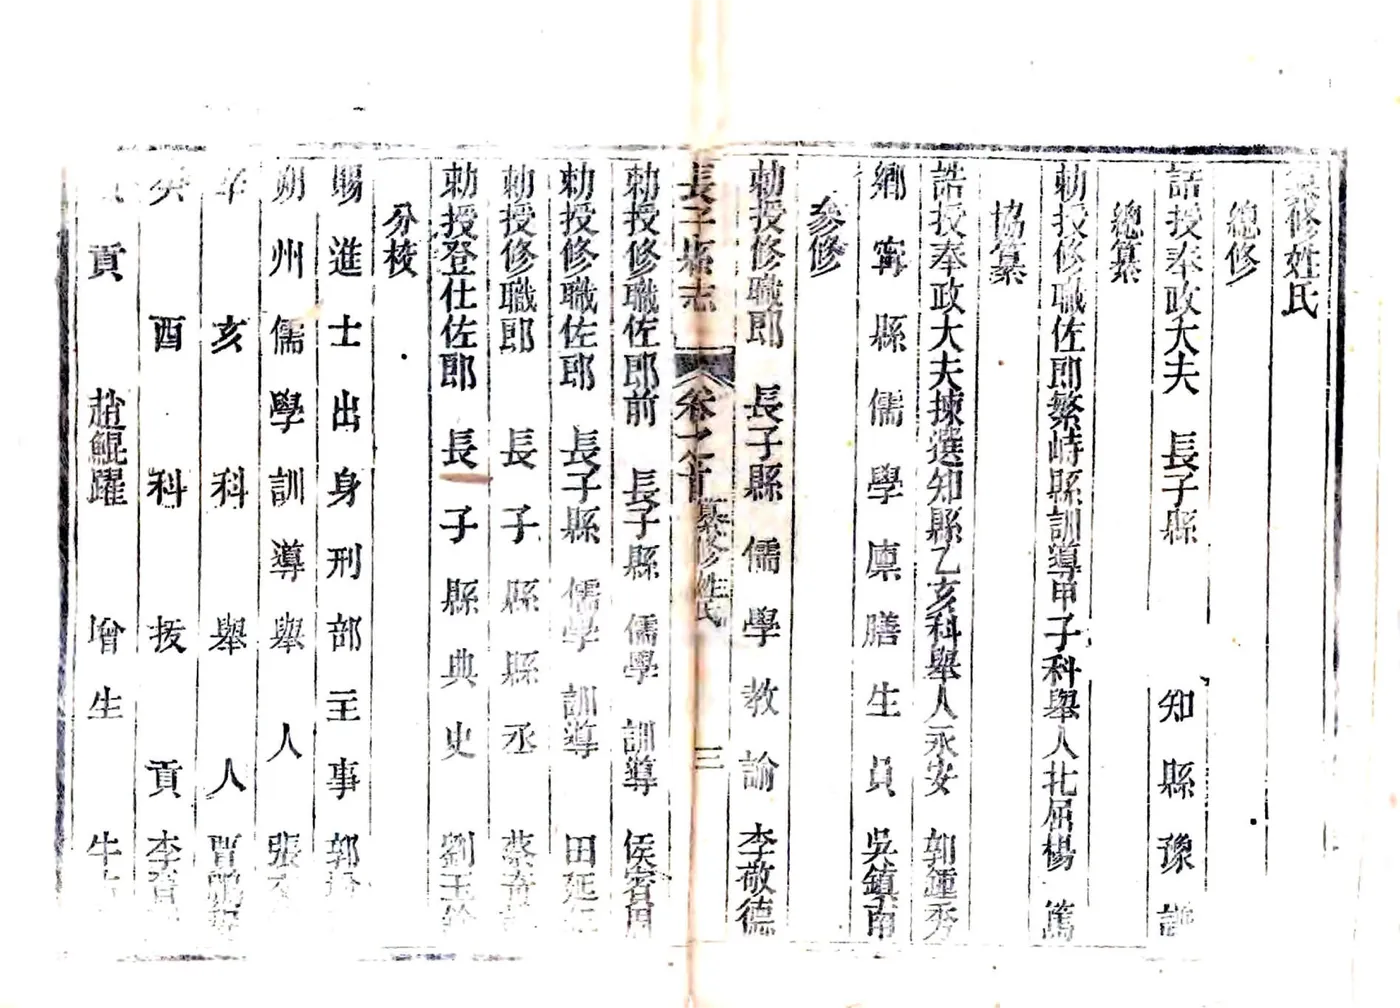 纂修姓氏
總修
誥授奉政大夫 長子縣 知縣豫謙
總纂
勅授修職佐郎繁峙縣訓導甲子科舉人北屈楊篤
協纂
誥授奉政大夫揀選知縣乙亥科舉人永安 郭鍾秀
鄉寧縣儒學廩膳生員吳鎮南
參修
勅授修職郎 長子縣儒學教諭李敬德
長子縣志 卷之首 纂修姓氏 三
勅授修職佐郎前 長子縣儒學訓導侯宥
勅授修職佐郎 長子縣儒學訓導田延
勅授修職郎 長子縣縣丞蔡
勅授登仕佐郎 長子縣典史劉玉
分校
賜進士出身刑部主事郭
朔州儒學訓導舉人張
亥科舉人賈鵬
癸酉科拔貢李
貢 趙鯤躍 增生牛